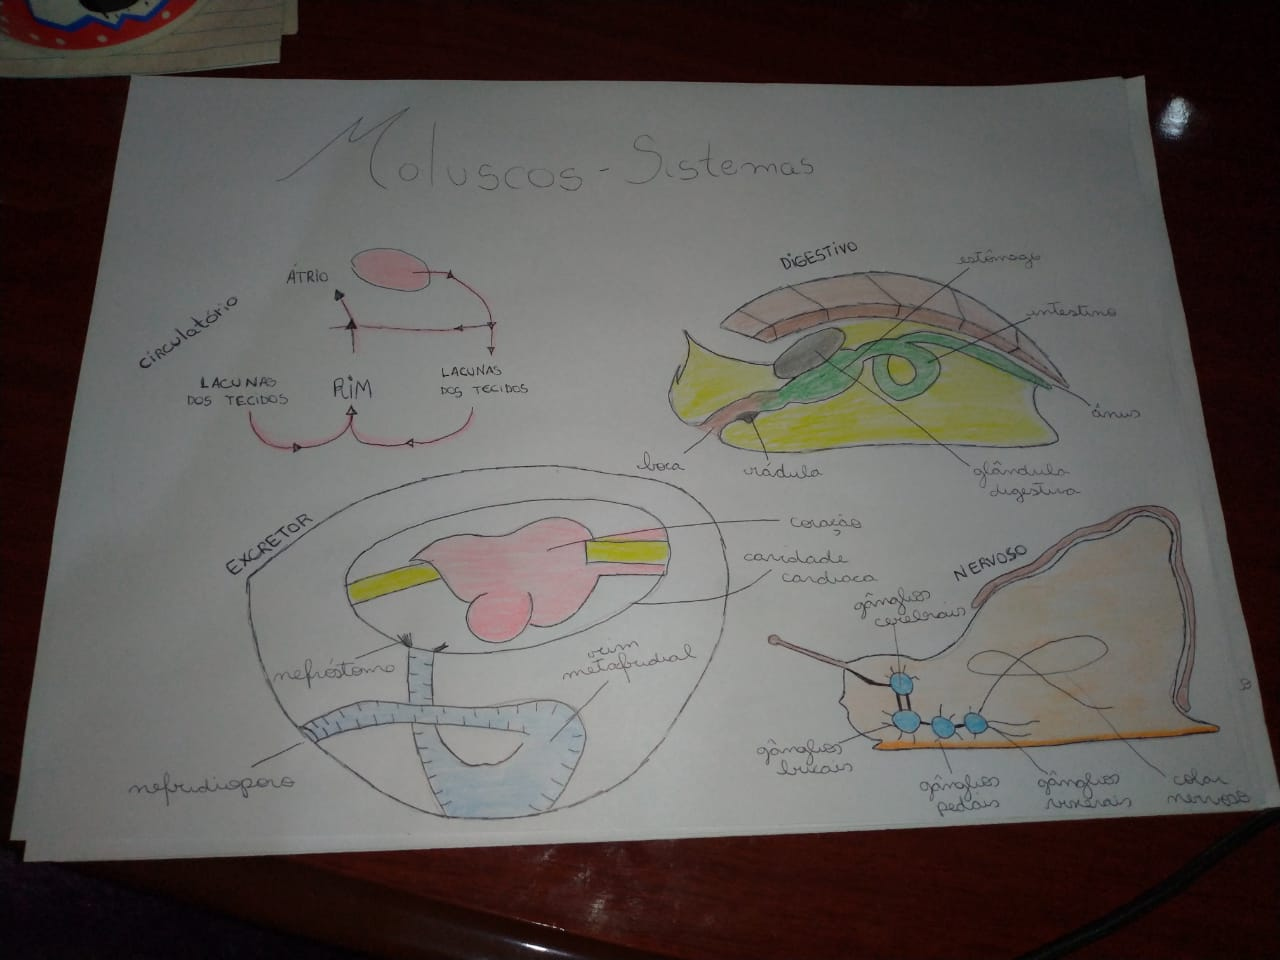 Moluscos - Sistemas
CIRCULATÓRIO
ÁTRIO
LACUNAS
DOS TECIDOS
RIM
LACUNAS
DOS TECIDOS
DIGESTIVO
estômago
intestino
ânus
boca
rádula
glândula
digestiva
EXCRETOR
coração
cavidade
cardíaca
nefróstoma
rim
metafridial
nefridioporo
NERVOSO
gânglios
cerebrais
gânglios
bucais
gânglios
pediais
gânglios
viscerais
colar
nervoso